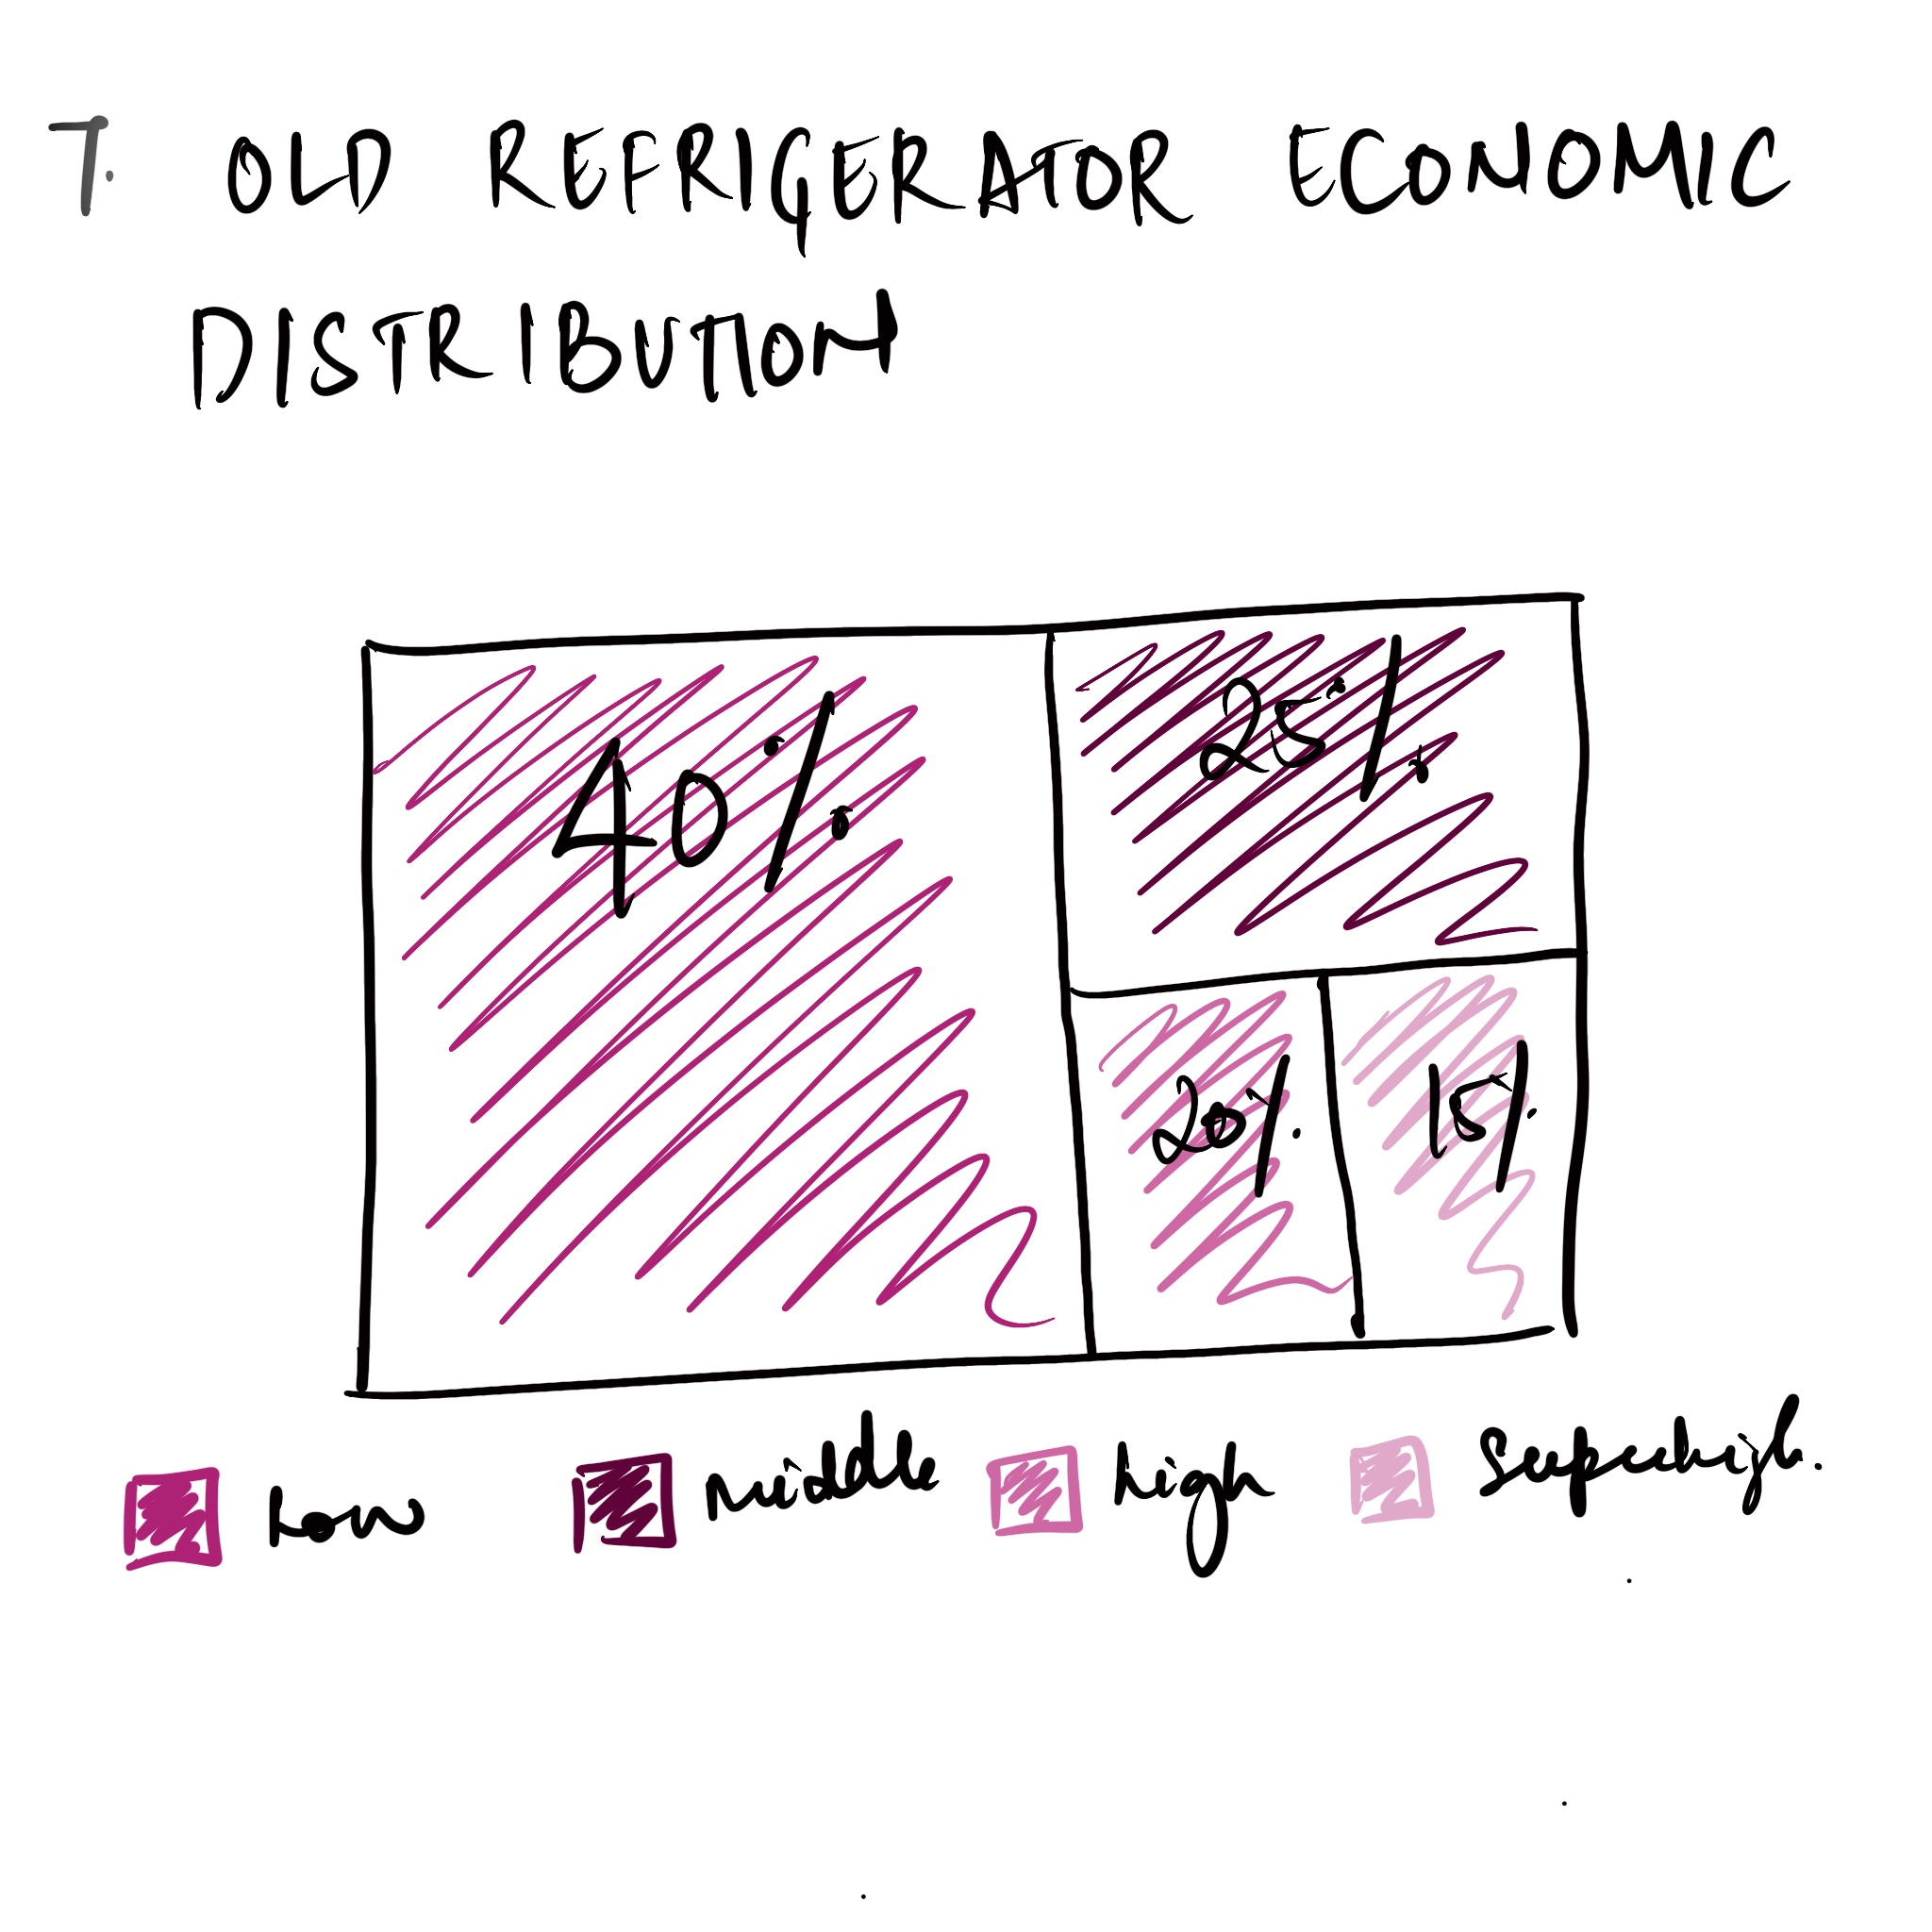 T. OLD REFRIGERATOR ECONOMIC
DISTRIBUTION
40%
25%
20%
15%
Low
middle
high
Superhigh.